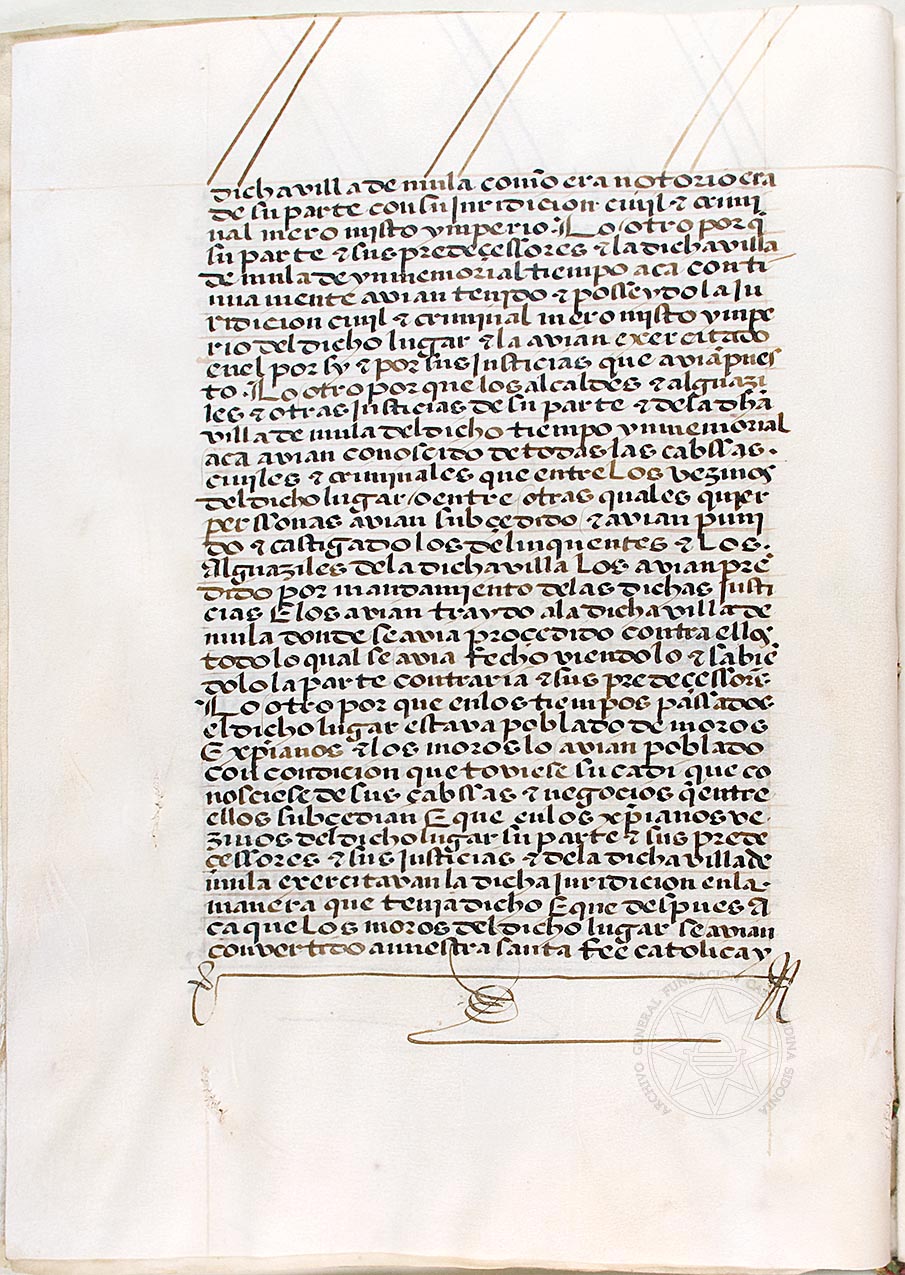 dicha villa de mula como era notorio era
de su parte con su juridicion civil & crimi
nal mero misto ymperio. Lo otro porq̃
su parte & sus predeçessores & la dicha villa
de mula de ynmemorial tiempo aca conti
nua mente avian tenido & posseydo la ju
ridicion civil & criminal mero misto ympe
rio del dicho lugar & la avian exercitado
en el por sy & por sus justicias que aviã pues
to. Lo otro por que los alcaldes & alguazi
les & otras justicias de su parte & de la dh̃a
villa de mula del dicho tiempo ynmemorial
aca avian conoscido de todas las cabssas.
civiles & criminales que entre los vezinos
del dicho lugar / o entre otras quales quier
perssonas avian subçedido & avian puni
do & castigado los delinquentes & los.
Alguaziles de la dicha villa los avian pre
dido por mandamiento de las dichas justi
cias E los avian traydo a la dicha villa de
mula donde se avia proçedido contra ellos
todo lo qual se avia fecho viendolo & sabiẽ
dolo la parte contraria & sus predeçessores̃
Lo otro por que en los tiempos passados
el dicho lugar estava poblado de moros
E xp̃ianos & los moros lo avian poblado
con condicion que toviese su cadi que co
nosciese de sus cabssas & negocios q̃ entre
ellos subcedian E que en los xp̃ianos ve
zinos del dicho lugar su parte & sus prede
çessores & sus justicias & de la dicha villa de
mula exercitavan la dicha juridicion en la.
manera que tenia dicho E que despues A
ca que los moros del dicho lugar se avian
convertido a nuestra santa fee catolica y
ARCHIVO GENERAL FUNDACION CASA MEDINA SIDONIA